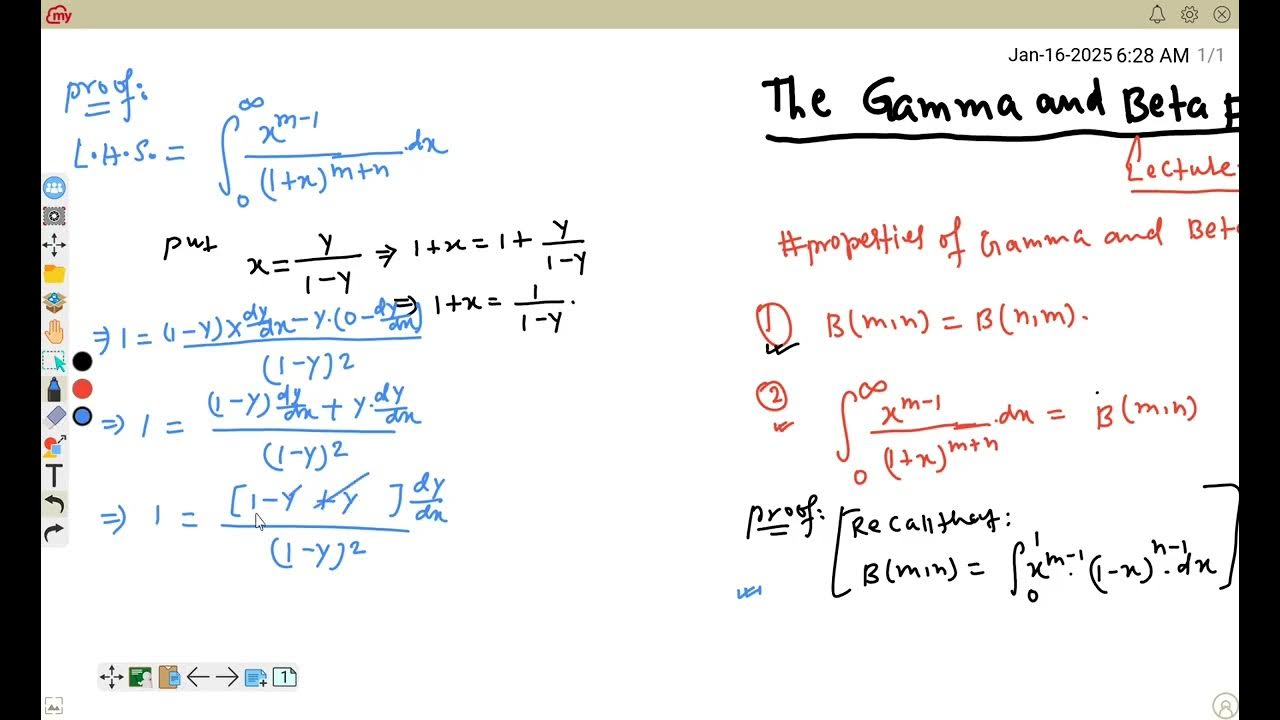 my
Jan-16-2025 6:28 AM 1/1
proof:
L.H.S. = ∫₀^∞ x^{m-1}/(1+x)^{m+n} .dx
put x = y/(1-y) ⇒ 1+x = 1 + y/(1-y)
⇒ 1+x = 1/(1-y) .
⇒ 1 = ((1-y)x dy/dx - y.(0 - dy/dx))/(1-y)^2
⇒ 1 = ((1-y) dy/dx + y. dy/dx)/(1-y)^2
⇒ 1 = [1-y+y] dy/dx/(1-y)^2
The Gamma and Beta
Lecture
#properties of Gamma and Bet
① B(m,n) = B(n,m).
② ∫₀^∞ x^{m-1}/(1+x)^{m+n} .dx = B(m,n)
proof: [Recall that:
B(m,n) = ∫₀^1 x^{m-1}.(1-x)^{n-1}.dx]
T
1